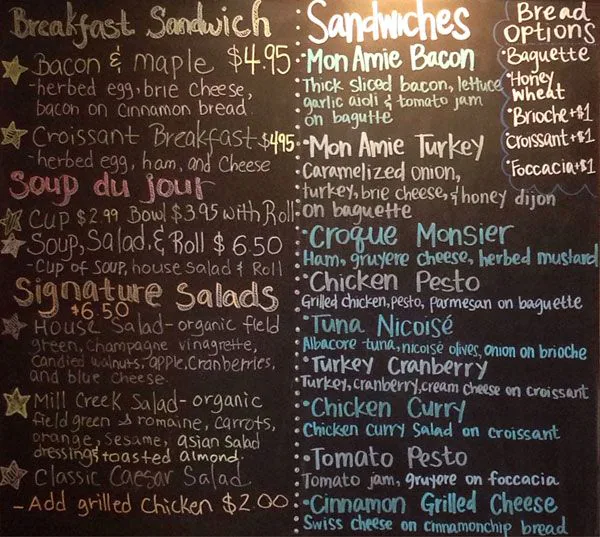 Breakfast Sandwich
Bacon & maple $4.95
-herbed egg, brie cheese,
bacon on cinnamon bread.
Croissant Breakfast $4.95
-herbed egg, ham, and cheese
Soup du jour
Cup $2.99 Bowl $3.95 with Roll
Soup, Salad, & Roll $6.50
-Cup of soup, house salad & Roll
Signature Salads
$6.50
House Salad-organic field
green, Champagne vinagrette,
Candied walnuts, apple, Cranberries,
and blue cheese.
Mill Creek Salad-organic
field green & romaine, carrots,
orange, sesame, asian salad
dressing & toasted almond.
Classic Caesar Salad
-Add grilled Chicken $2.00
Sandwiches
•Mon Amie Bacon
Thick sliced bacon, lettuce
garlic aioli & tomato jam
on bagutte
•Mon Amie Turkey
Caramelized onion,
turkey, brie cheese, & honey dijon
on baguette
•Croque Monsier
Ham, gruyere cheese, herbed mustard
•Chicken Pesto
Grilled chicken, pesto, parmesan on baguette
•Tuna Nicoisé
Albacore tuna, nicoise olives, onion on brioche
•Turkey Cranberry
Turkey, cranberry, cream cheese on croissant
•Chicken Curry
Chicken curry Salad on croissant
•Tomato Pesto
Tomato jam, gruyere on foccacia
•Cinnamon Grilled Cheese
Swiss cheese on cinnamonchip bread
Bread
Options
•Baguette
•Honey
Wheat
•Brioche+$1
•Croissant+$1
•Foccacia+$1